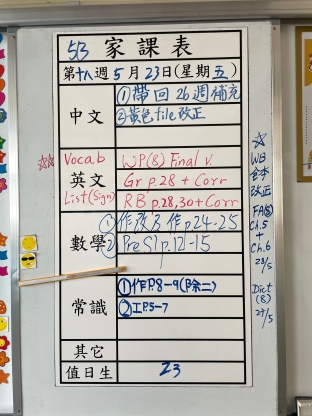 5B 家課表
第十八週 5月23日(星期五)
中文
①帶回26週補充
②黃色file改正
Vocab
英文
List(Sign)
WP(8) Final v.
Gr p.28 + Corr
RB p.28,30 + Corr
數學
①作改及作p24-25
②PreS1 p.12-15
常識
①作P.8-9(除二)
②工P.5-7
其它
值日生
23
WB
改正
FA(8)
Ch.5
+
Ch.6
28/5
Dict
(8)
27/5